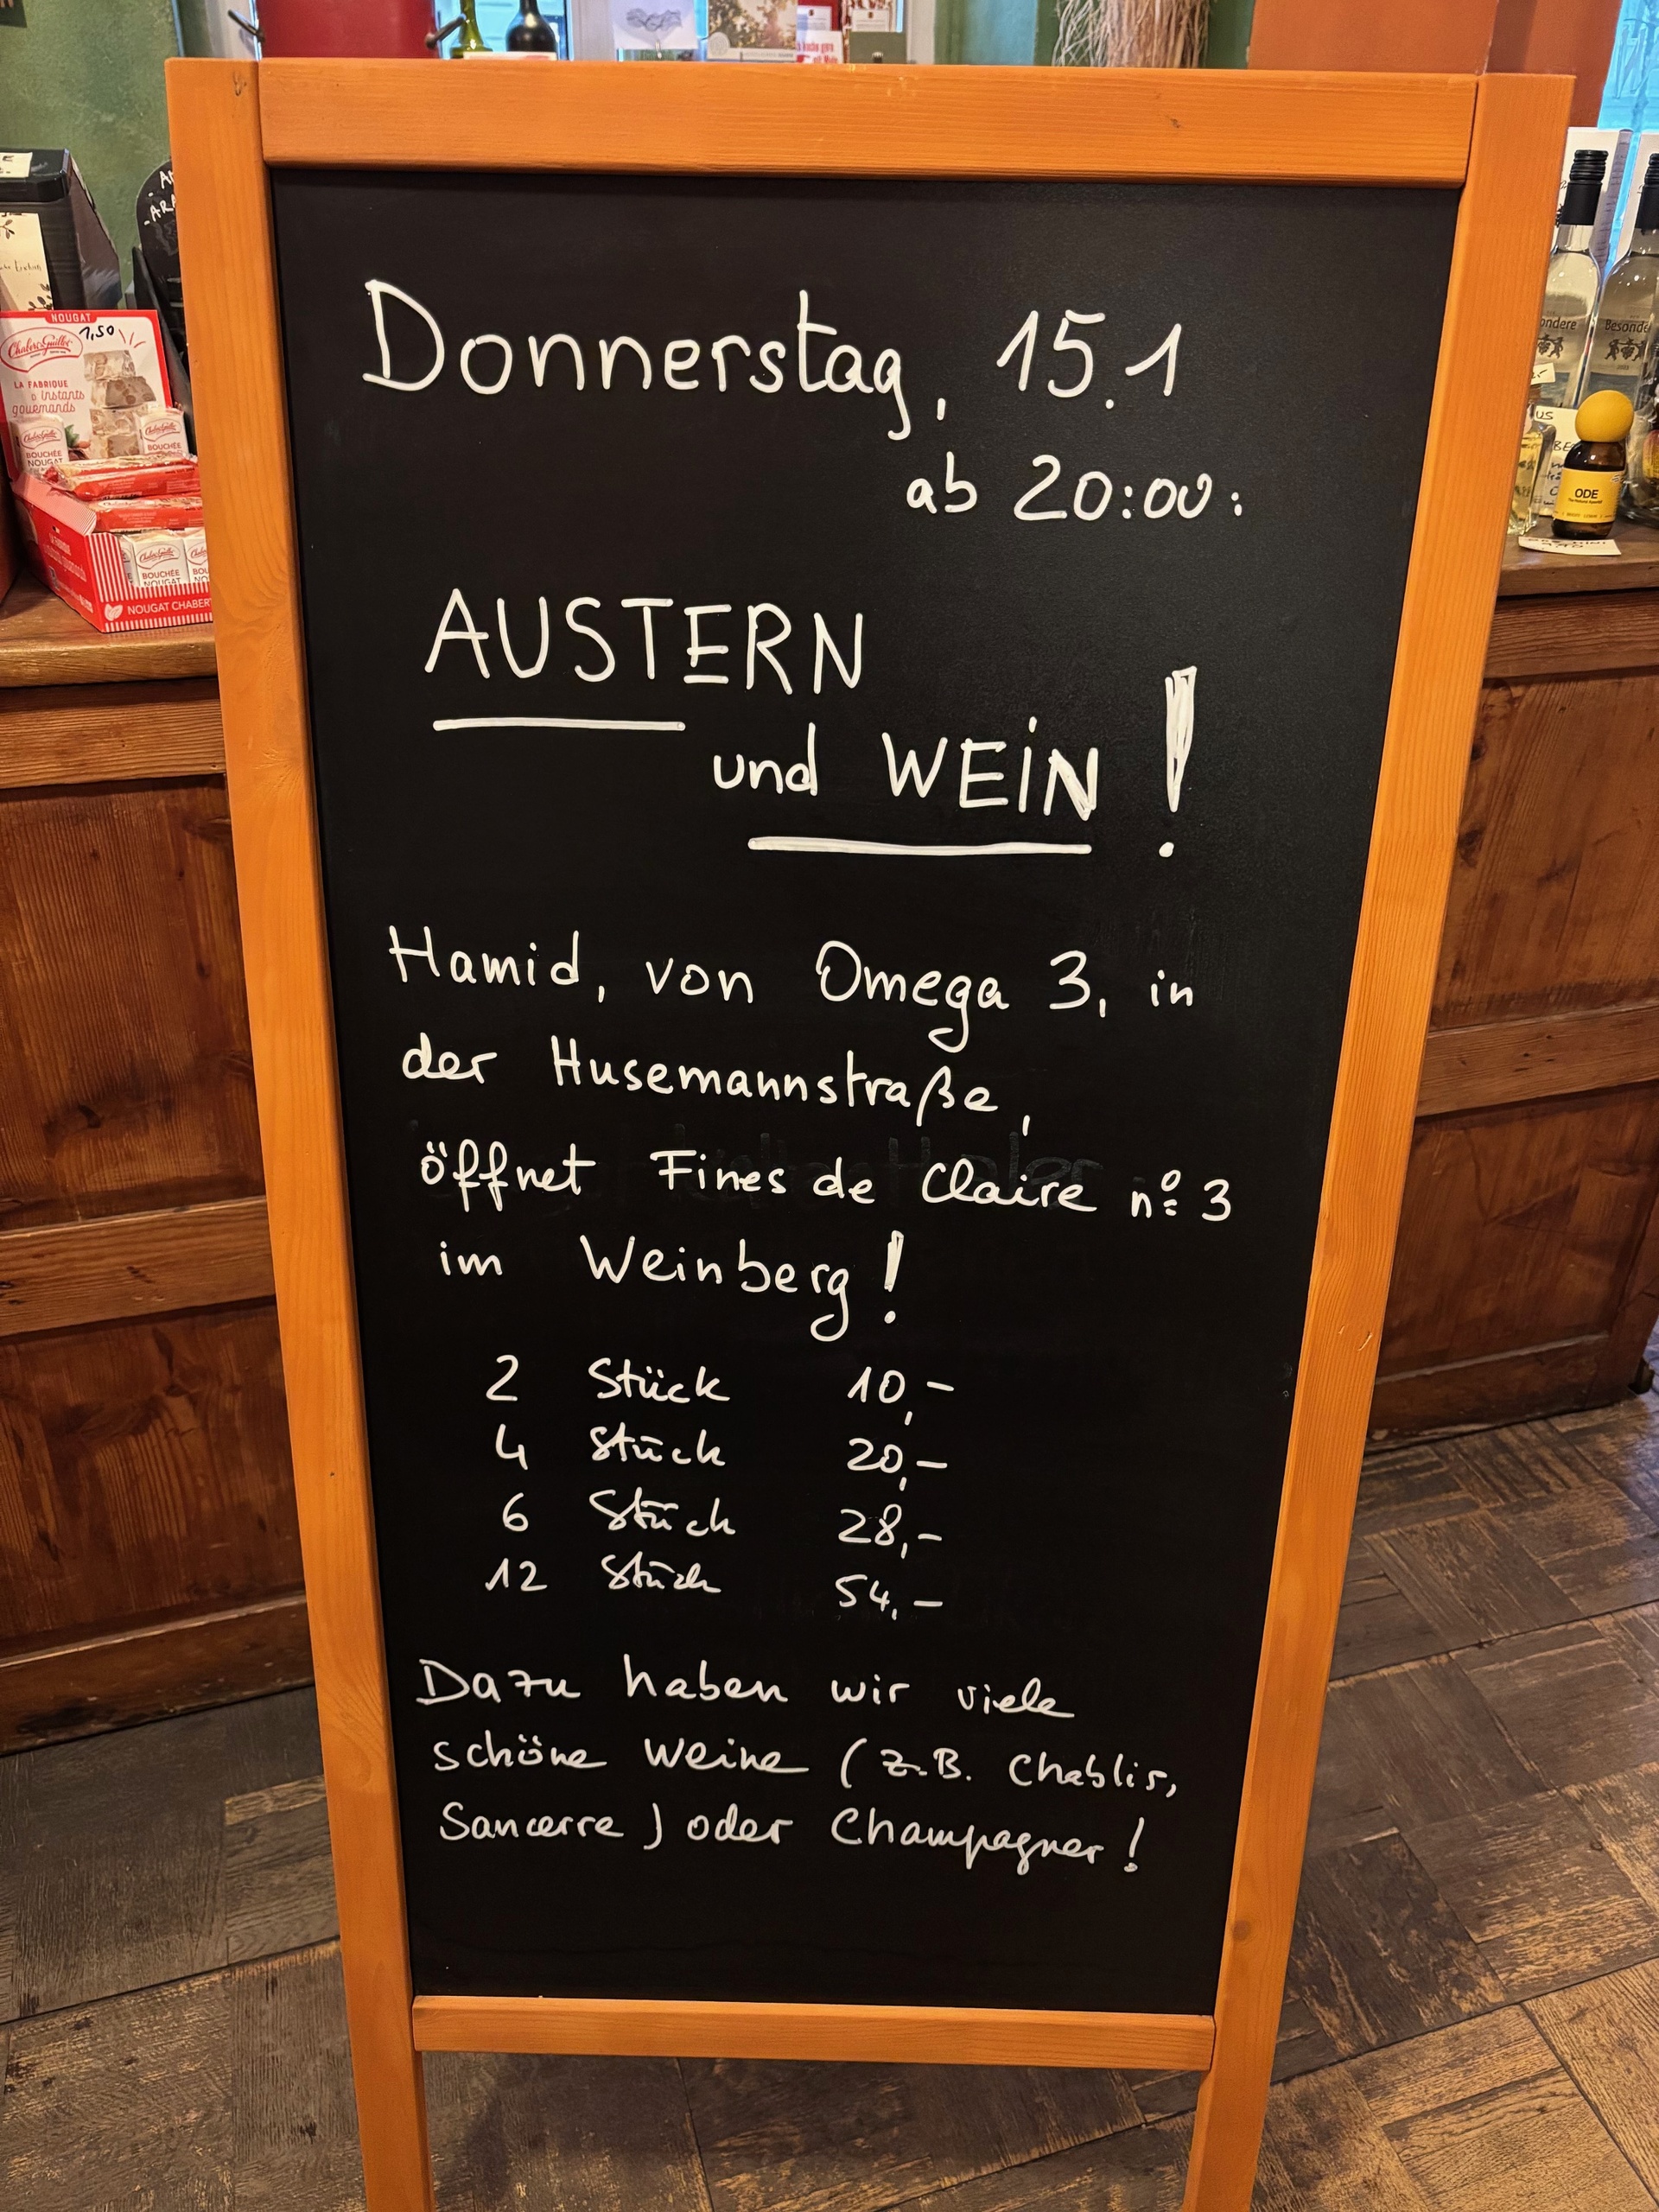 Donnerstag, 15.1
ab 20:00:
AUSTERN
und WEIN!
Hamid, von Omega 3, in
der Husemannstraße,
öffnet Fines de Claire nº 3
im Weinberg!
2 Stück 10,-
4 Stück 20,-
6 Stück 28,-
12 Stück 54,-
Dazu haben wir viele
schöne Weine (z.B. Chablis,
Sancerre) oder Champagner!
NOUGAT
1,50
Chabert & Guillot
LA FABRIQUE
à Instants
gourmands
BOUCHÉE
NOUGAT
BOUCHÉE
NOUGAT
BOUCHÉE
NOUGAT
NOUGAT CHABERT
ondere
Besonde
ODE